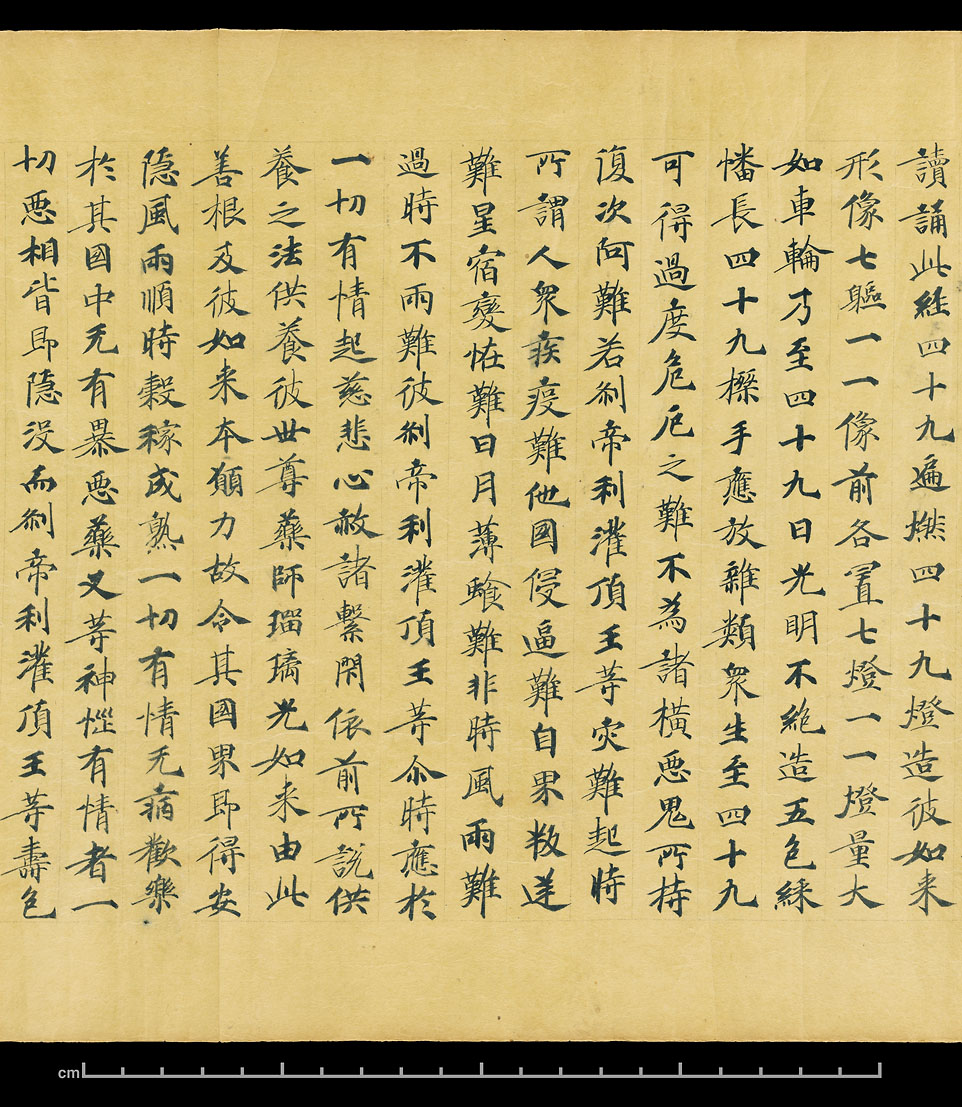 讀誦此經四十九遍燃四十九燈造彼如来
形像七軀一一像前各置七燈一一燈量大
如車輪乃至四十九日光明不絶造五色綵
幡長四十九㯹手應放雜類衆生至四十九
可得過度危厄之難不為諸横惡鬼所持
復次阿難若刹帝利灌頂王等灾難起時
所謂人衆疾疫難他國侵逼難自界叛逆
難星宿變恠難日月薄蝕難非時風雨難
過時不雨難彼刹帝利灌頂王等尒時應於
一切有情起慈悲心赦諸繫閇依前所説供
養之法供養彼世尊藥師瑠璃光如来由此
善根及彼如来本願力故令其國界即得安
隠風雨順時穀稼成熟一切有情无病歡樂
於其國中无有暴惡藥叉等神惱有情者一
切惡相皆即隠没而刹帝利灌頂王等壽色
cm